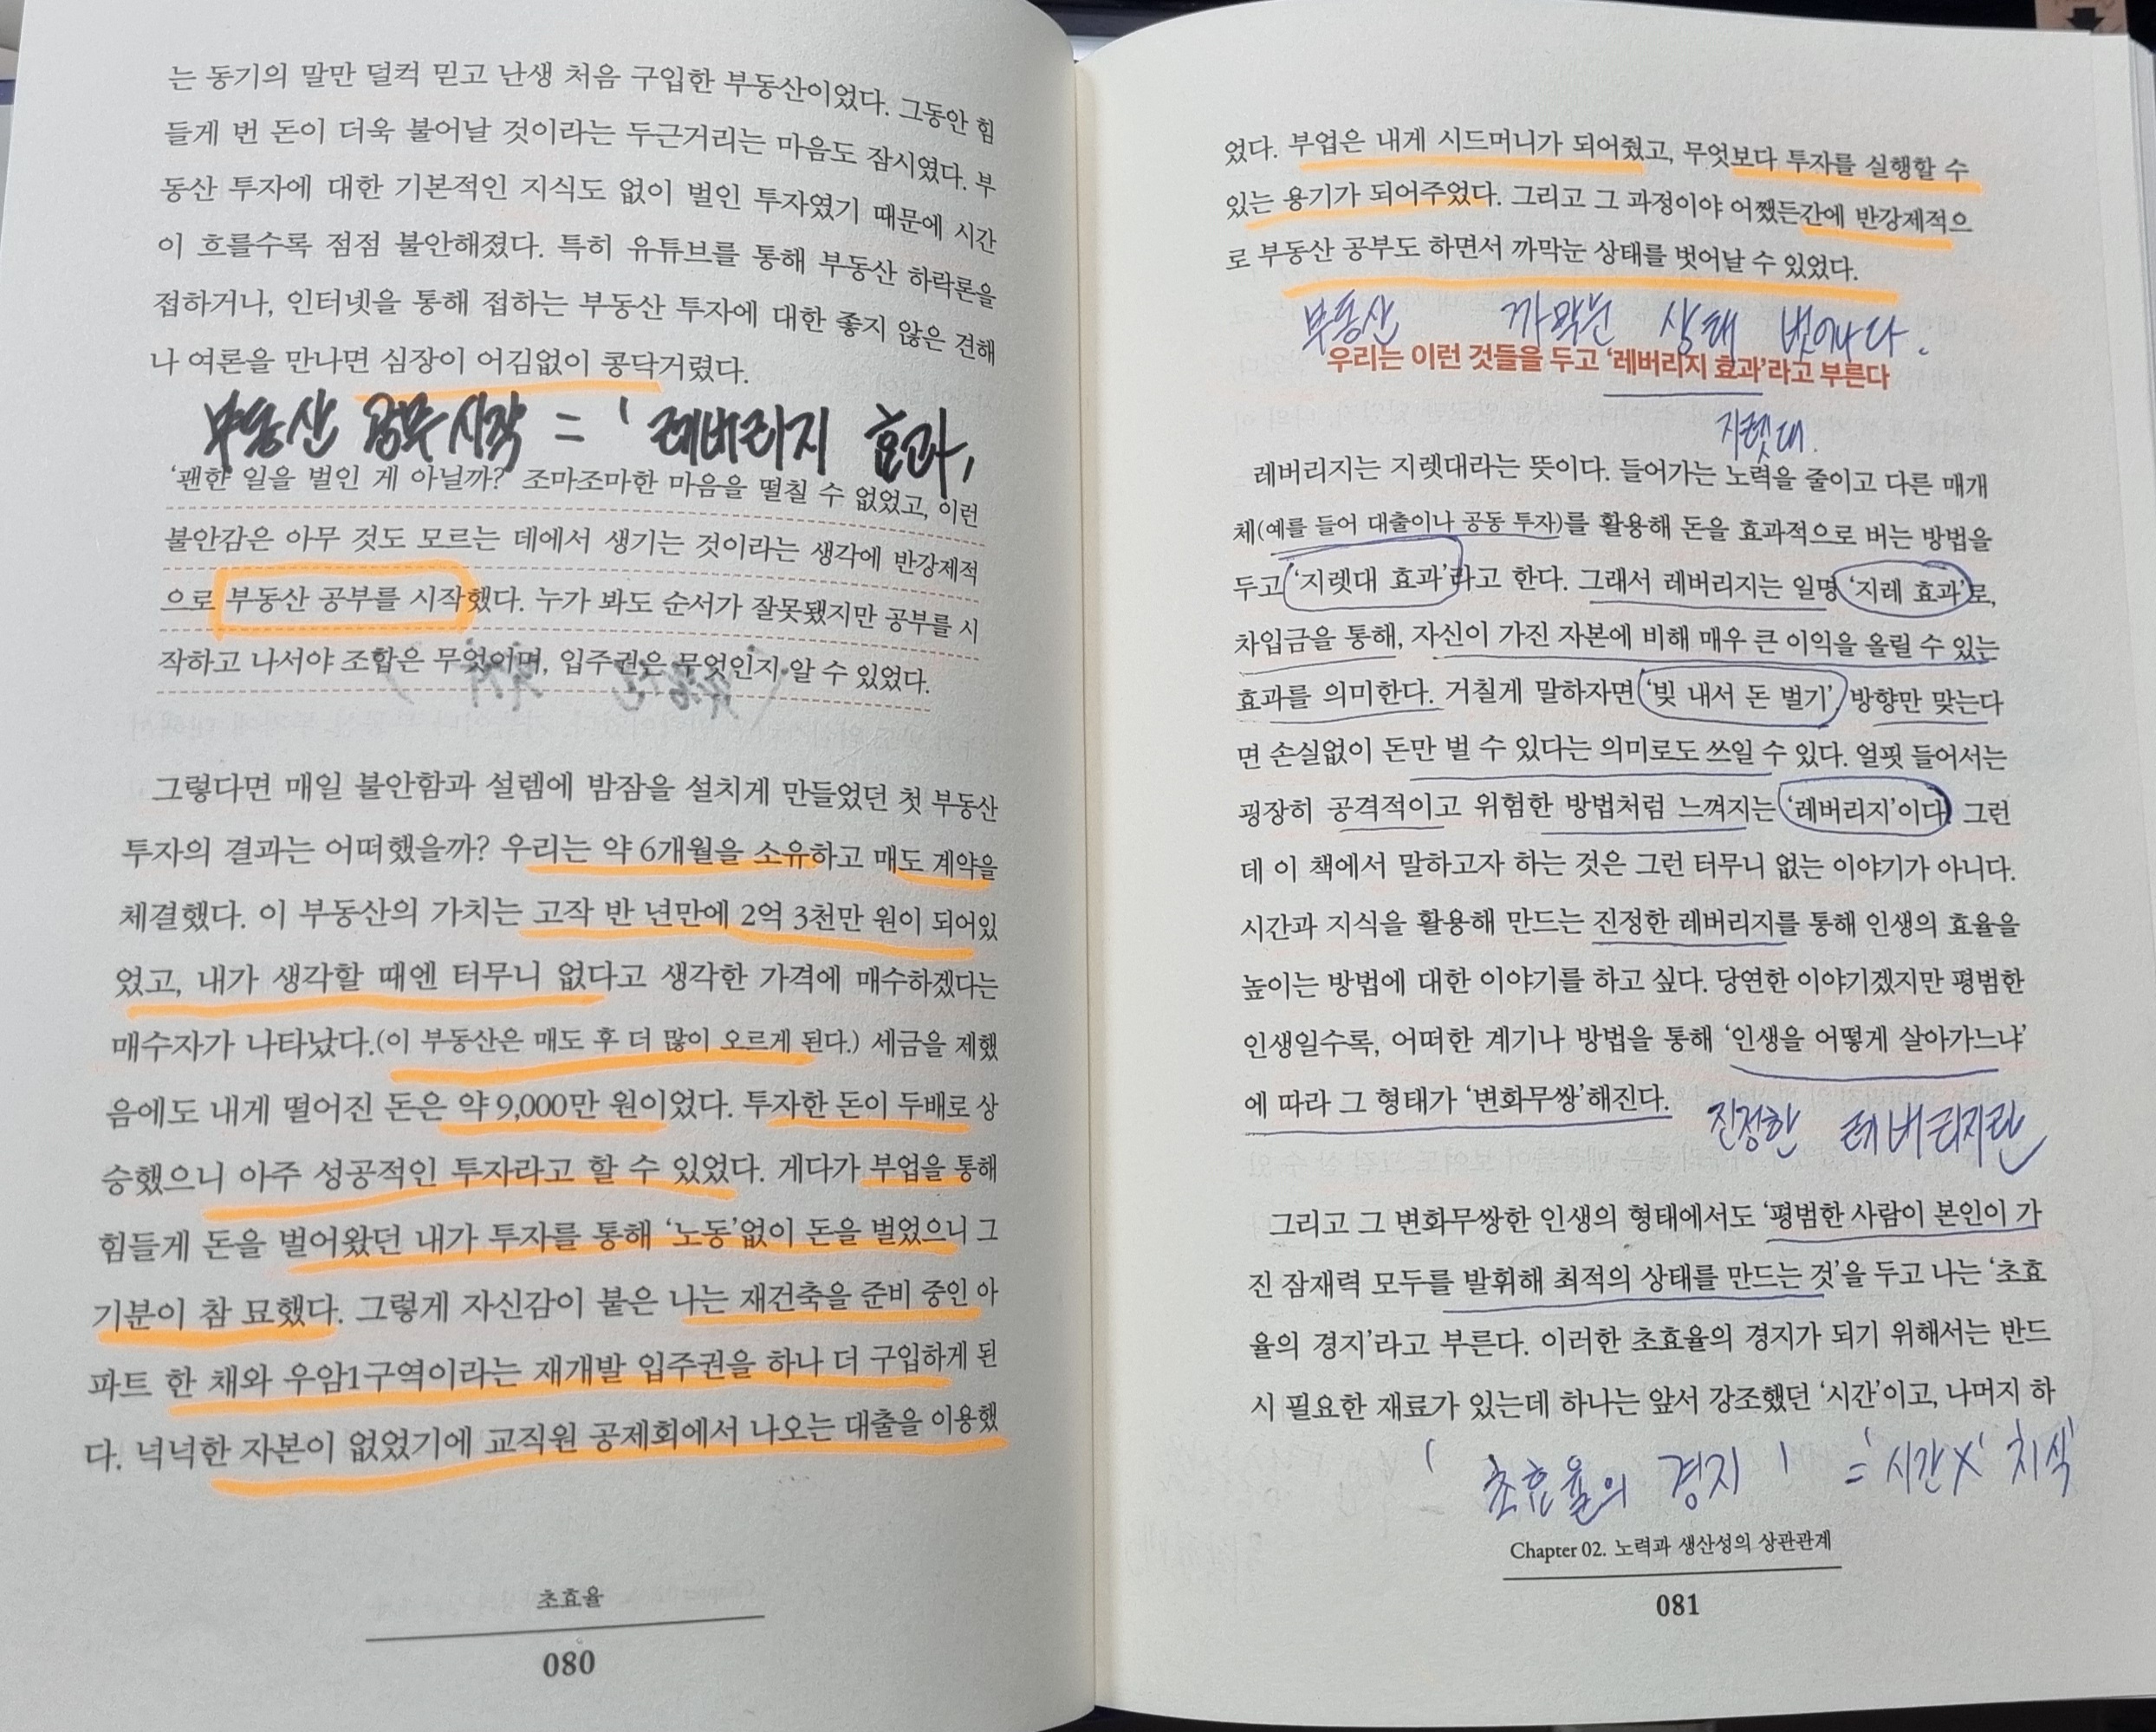 는 동기의 말만 덜컥 믿고 난생 처음 구입한 부동산이었다. 그동안 힘
들게 번 돈이 더욱 불어날 것이라는 두근거리는 마음도 잠시였다. 부
동산 투자에 대한 기본적인 지식도 없이 벌인 투자였기 때문에 시간
이 흐를수록 점점 불안해졌다. 특히 유튜브를 통해 부동산 하락론을
접하거나, 인터넷을 통해 접하는 부동산 투자에 대한 좋지 않은 견해
나 여론을 만나면 심장이 어김없이 콩닥거렸다.
부동산 공부 시작 = '레버리지 효과,
'괜한 일을 벌인 게 아닐까? 조마조마한 마음을 떨칠 수 없었고, 이런
불안감은 아무 것도 모르는 데에서 생기는 것이라는 생각에 반강제적
으로 부동산 공부를 시작했다. 누가 봐도 순서가 잘못됐지만 공부를 시
작하고 나서야 조합은 무엇이며, 입주권은 무엇인지 알 수 있었다.
그렇다면 매일 불안함과 설렘에 밤잠을 설치게 만들었던 첫 부동산
투자의 결과는 어떠했을까? 우리는 약 6개월을 소유하고 매도 계약을
체결했다. 이 부동산의 가치는 고작 반 년만에 2억 3천만 원이 되어있
었고, 내가 생각할 때엔 터무니 없다고 생각한 가격에 매수하겠다는
매수자가 나타났다.(이 부동산은 매도 후 더 많이 오르게 된다.) 세금을 제했
음에도 내게 떨어진 돈은 약 9,000만 원이었다. 투자한 돈이 두배로 상
승했으니 아주 성공적인 투자라고 할 수 있었다. 게다가 부업을 통해
힘들게 돈을 벌어왔던 내가 투자를 통해 '노동'없이 돈을 벌었으니 그
기분이 참 묘했다. 그렇게 자신감이 붙은 나는 재건축을 준비 중인 아
파트 한 채와 우암1구역이라는 재개발 입주권을 하나 더 구입하게 된
다. 넉넉한 자본이 없었기에 교직원 공제회에서 나오는 대출을 이용했
초효율
080
었다. 부업은 내게 시드머니가 되어줬고, 무엇보다 투자를 실행할 수
있는 용기가 되어주었다. 그리고 그 과정이야 어쨌든간에 반강제적으
로 부동산 공부도 하면서 까막눈 상태를 벗어날 수 있었다.
부동산 까막눈 상태 벗어나다.
우리는 이런 것들을 두고 '레버리지 효과'라고 부른다
지렛대.
레버리지는 지렛대라는 뜻이다. 들어가는 노력을 줄이고 다른 매개
체(예를 들어 대출이나 공동 투자)를 활용해 돈을 효과적으로 버는 방법을
두고 '지렛대 효과'라고 한다. 그래서 레버리지는 일명 '지레 효과'로,
차입금을 통해, 자신이 가진 자본에 비해 매우 큰 이익을 올릴 수 있는
효과를 의미한다. 거칠게 말하자면 '빚 내서 돈 벌기'. 방향만 맞는다
면 손실없이 돈만 벌 수 있다는 의미로도 쓰일 수 있다. 얼핏 들어서는
굉장히 공격적이고 위험한 방법처럼 느껴지는 '레버리지'이다. 그런
데 이 책에서 말하고자 하는 것은 그런 터무니 없는 이야기가 아니다.
시간과 지식을 활용해 만드는 진정한 레버리지를 통해 인생의 효율을
높이는 방법에 대한 이야기를 하고 싶다. 당연한 이야기겠지만 평범한
인생일수록, 어떠한 계기나 방법을 통해 '인생을 어떻게 살아가느냐'
에 따라 그 형태가 '변화무쌍'해진다.
진정한 레버리지란
그리고 그 변화무쌍한 인생의 형태에서도 '평범한 사람이 본인이 가
진 잠재력 모두를 발휘해 최적의 상태를 만드는 것'을 두고 나는 '초효
율의 경지'라고 부른다. 이러한 초효율의 경지가 되기 위해서는 반드
시 필요한 재료가 있는데 하나는 앞서 강조했던 '시간'이고, 나머지 하
'초효율의 경지' = '시간 X' 지식'
Chapter 02. 노력과 생산성의 상관관계
081